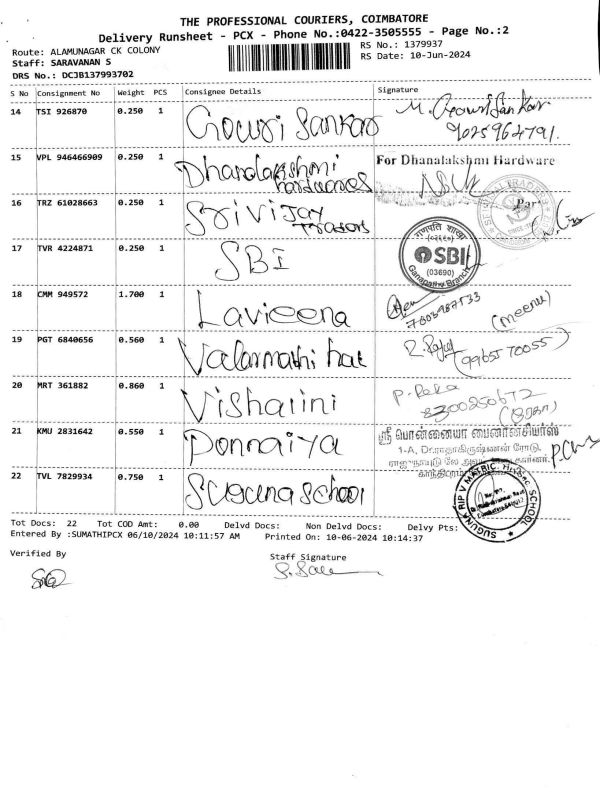 THE PROFESSIONAL COURIERS, COIMBATORE
Delivery Runsheet - PCX - Phone No.:0422-3505555 - Page No.:2
Route: ALAMUNAGAR CK COLONY
RS No.: 1379937
Staff: SARAVANAN S
RS Date: 10-Jun-2024
DRS No.: DCJB137993702
S No Consignment No Weight PCS Consignee Details Signature
14 TSI 926870 0.250 1 Gowri Sankar M. Gowri Sankar
9025962791.
15 VPL 946466909 0.250 1 Dhanalakshmi hardwares For Dhanalakshmi Hardware
16 TRZ 61028663 0.250 1 Sri Vijay Traders
17 TVR 4224871 0.250 1 SBI
கணபதி
SBI
(03690)
Ganapathy Branch
18 CMM 949572 1.700 1 Lavieena
(meenu)
19 PGT 6840656 0.560 1 Valarmathi
(9965570055)
20 MRT 361882 0.860 1 Vishalini
21 KMU 2831642 0.550 1 Ponnaiya ஸ்ரீ பொன்னையா பைனான்சியர்ஸ்
1-A, Dr.ராதாகிருஷ்ணன் ரோடு,
22 TVL 7829934 0.750 1 Suguna School
SUGUNA RIP V MATRIC. Hr. Sec SCHOOL
Tot Docs: 22 Tot COD Amt: 0.00 Delvd Docs: Non Delvd Docs: Delvy Pts:
Entered By :SUMATHIPCX 06/10/2024 10:11:57 AM Printed On: 10-06-2024 10:14:37
Verified By
Staff Signature